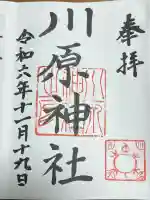 奉拝
川原神社
令和六年十一月十九日